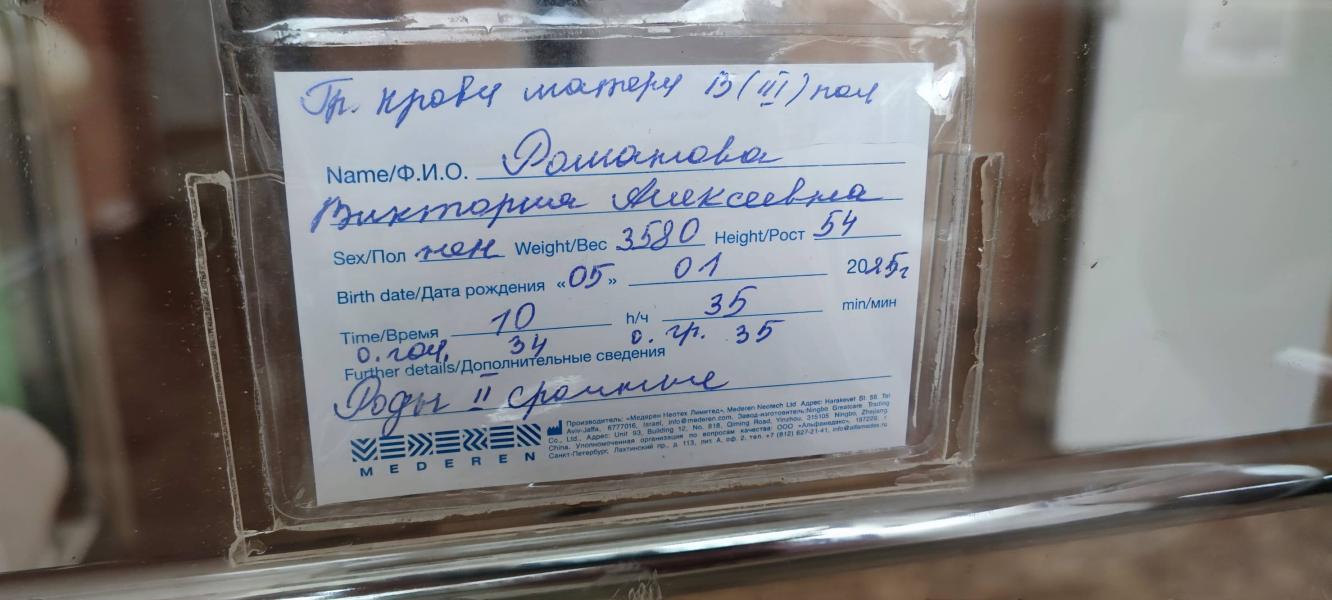 Гр. крови матери B(III) пол
Name/Ф.И.О. Романова
Виктория Алексеевна
Sex/Пол жен Weight/Вес 3580 Height/Рост 54
Birth date/Дата рождения «05» 01 2025г
Time/Время 10 h/ч 35 min/мин
о. гол. 34 о. гр. 35
Further details/Дополнительные сведения
Роды II срочные
MEDEREN
Производитель: «Медерен Неотех Лимитед», Mederen Neotech Ltd. Адрес: Harakevet St. 58, Tel
Aviv-Jaffa, 6777016, Israel, info@mederen.com. Завод-изготовитель: Ningbo Greatcare Trading
Co., Ltd., Адрес: Unit 93, Building 12, No. 818, Qiming Road, Yinzhou, 315105 Ningbo, Zhejiang,
China. Уполномоченная организация по вопросам качества: ООО «Альфамедэкс», 197229, г.
Санкт-Петербург, Лахтинский пр., д. 113, лит. А, оф. 2, тел. +7 (812) 627-21-41, info@alfamedex.ru